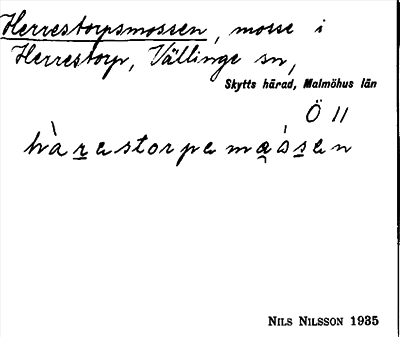 Herrestorpsmossen, mosse i
Herrestorp, Vällinge sn,
Skytts härad, Malmöhus län
Ö 11
hàrastorpamåsan
NILS NILSSON 1935